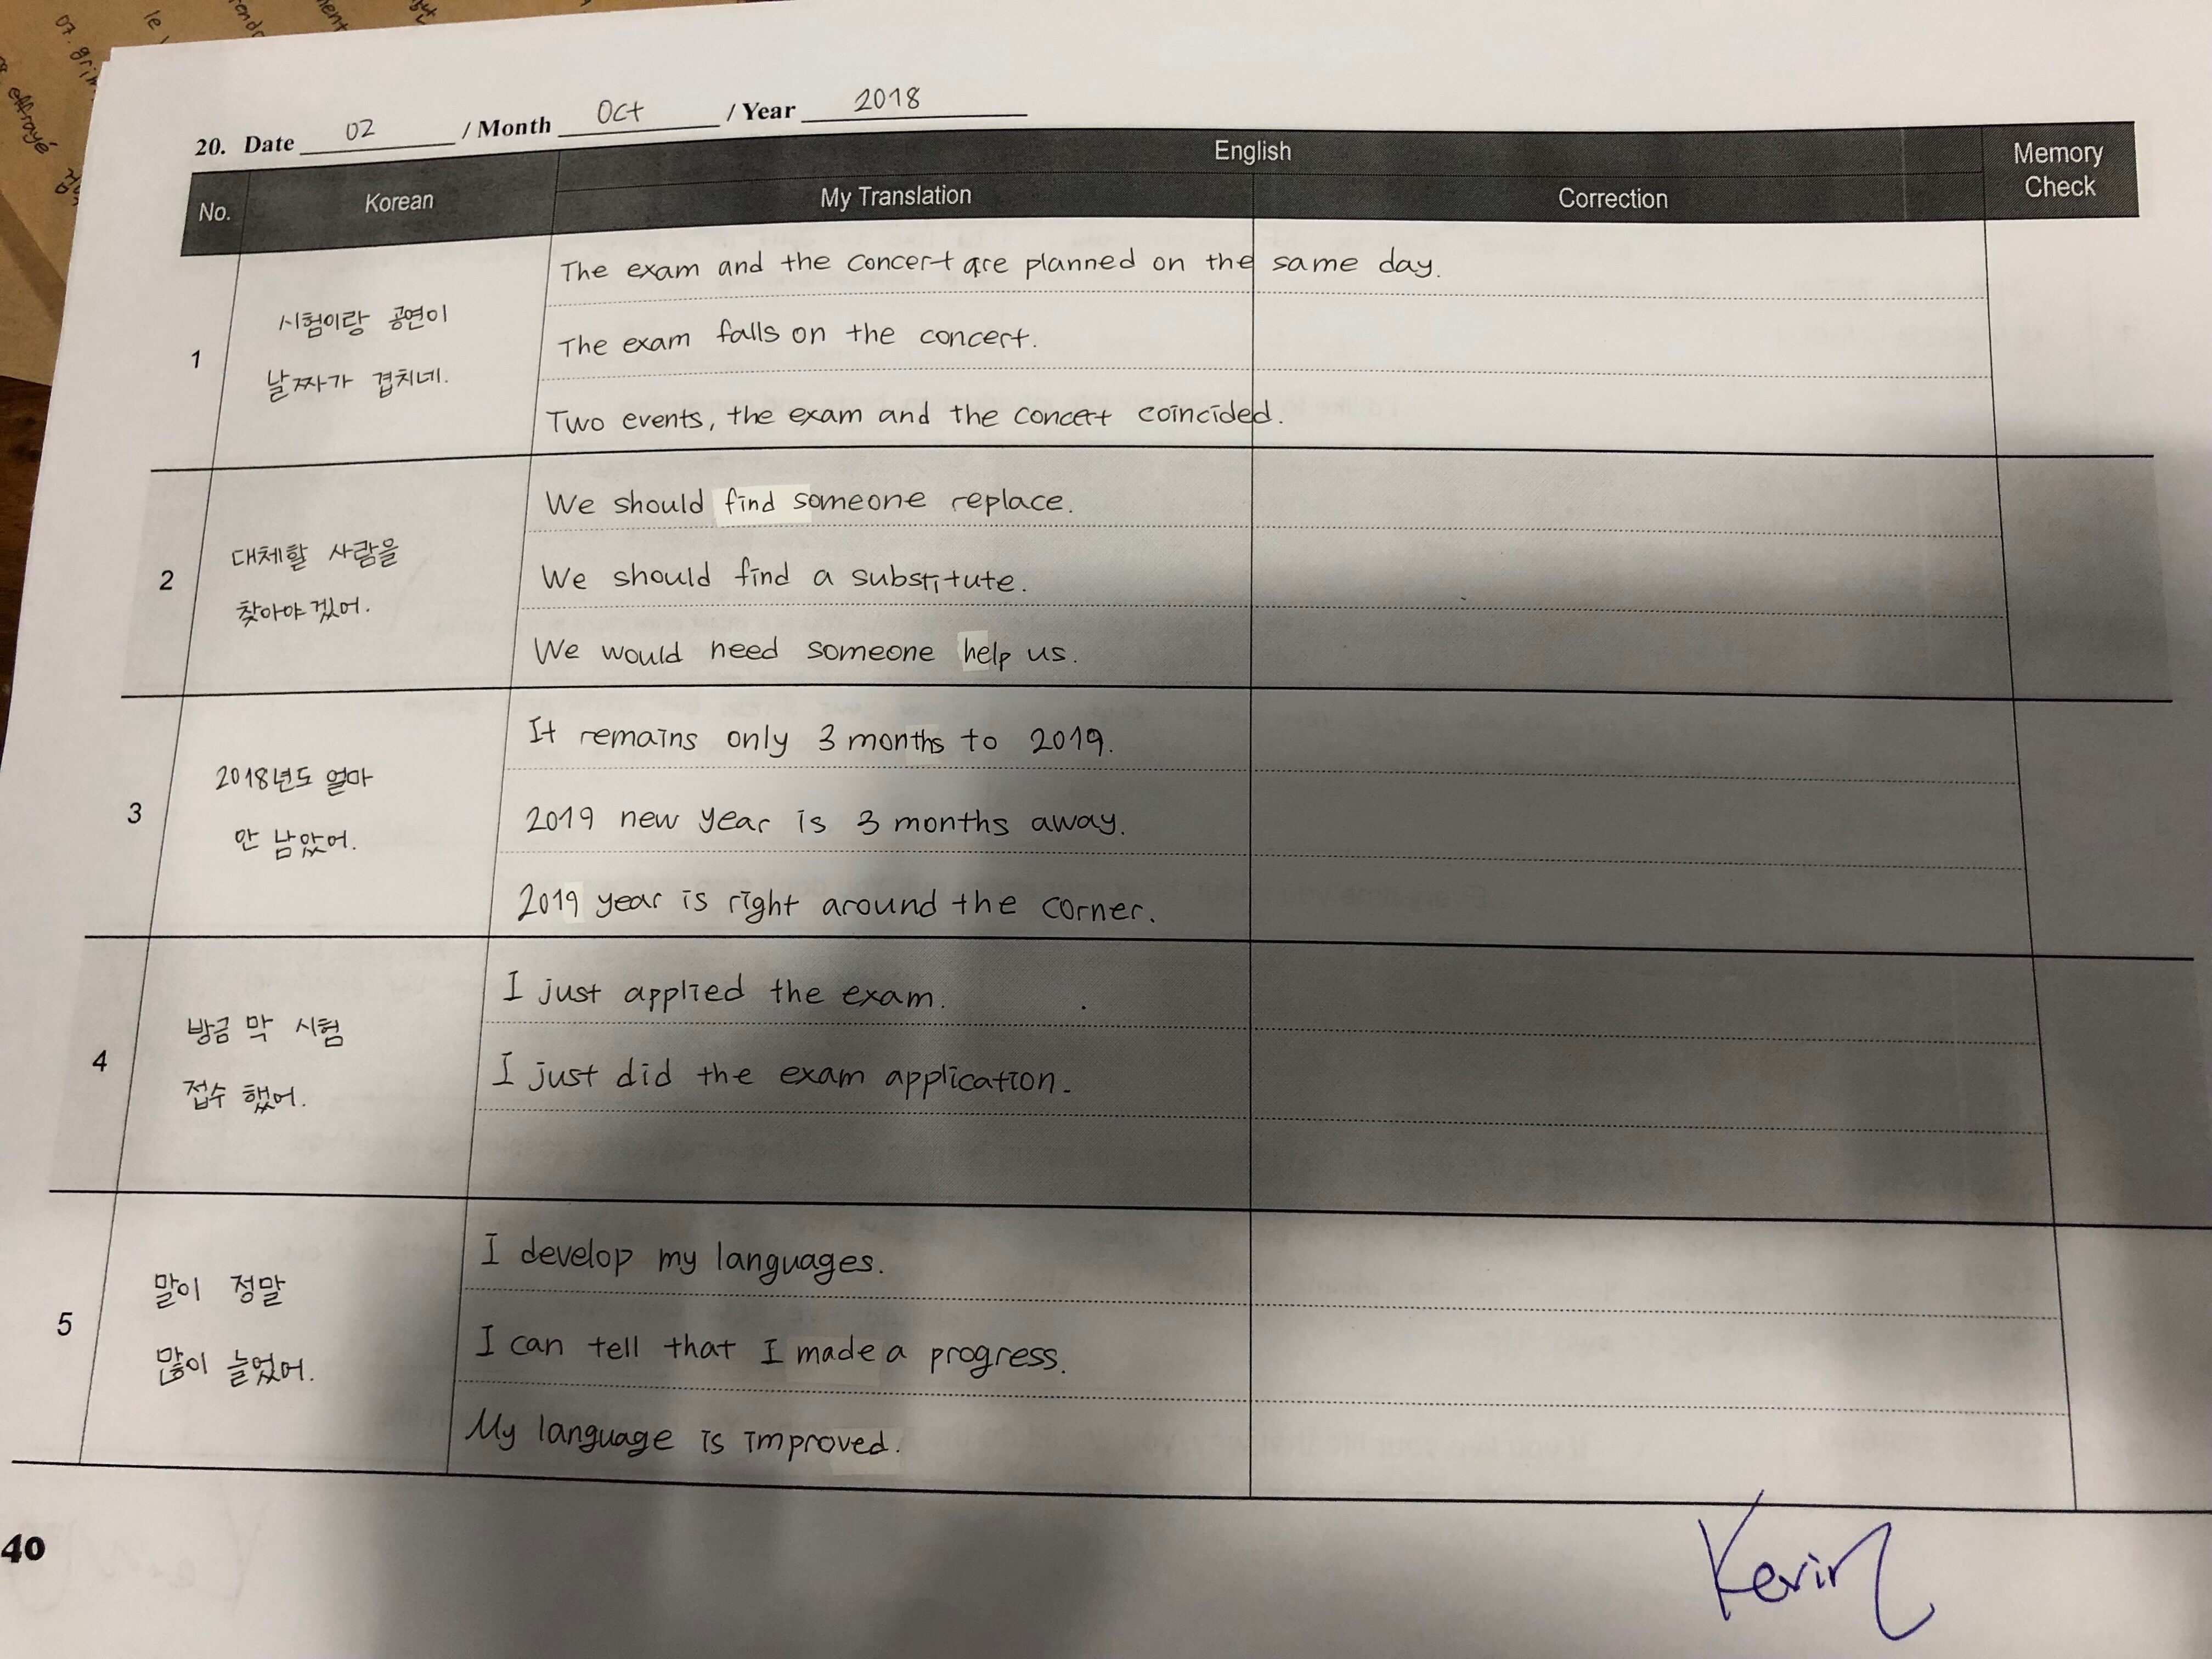 20. Date 02 / Month Oct / Year 2018
No.
Korean
English
My Translation
Correction
Memory
Check
1
시험이랑 공연이
날짜가 겹치네.
The exam and the concert are planned on the same day.
The exam falls on the concert.
Two events, the exam and the concert coincided.
2
대체할 사람을
찾아야겠어.
We should find someone replace.
We should find a substitute.
We would need someone help us.
3
2018년도 얼마
안 남았어.
It remains only 3 months to 2019.
2019 new year is 3 months away.
2019 year is right around the corner.
4
방금 막 시험
접수 했어.
I just applied the exam.
I just did the exam application.
5
말이 정말
많이 늘었어.
I develop my languages.
I can tell that I made a progress.
My language is improved.
40
Kevin